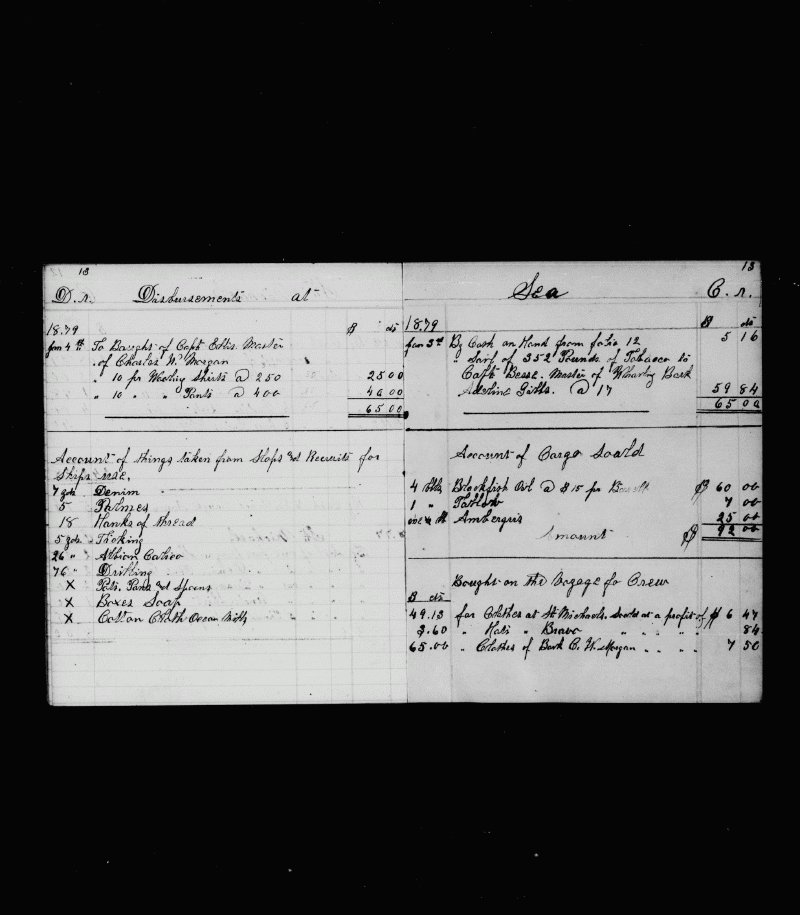 13
D.r. Disbursements at
1879 $ cts
Jan 4th To Baught of Capt Ellis. Master
of Charles W. Morgan
" 10 pr Wooling Shirts @ 250 25 00
" 10 " " Pants @ 400 40 00
65 00
Account of things taken from Slops and Recruits for
Ships use,
7 yds Denim
5 Palmes
18 Hanks of thread
5 yds Ticking
26 " Albion Calico
76 " Drilling
X Pots. Pans and Spoons
X Boxes Soap
X Cotton Cloth Ocean Mills
13
Sea C.r.
1879 $ cts
Jan 3rd By Cash on Hand from folio 12 5 16
" Sail of 352 Pounds of Tobacco to
Capt Besse. Master of Whaling Bark
Adeline Gibbs. @ 17 59 84
65 00
Account of Cargo Soald
4 bbls Blackfish Oil @ $15 per $ 60 00
1 " 7 00
Ambergris 25 00
Amount $ 92 00
Bought on the Voyage fo Crew
$ cts
49.13 for Clothes at St Michaels. Soald at a profit of $ 6 47
3.60 " Hats " Brava " " " " 84
65.00 " Clothes of Bark C. W. Morgan " " " 7 50